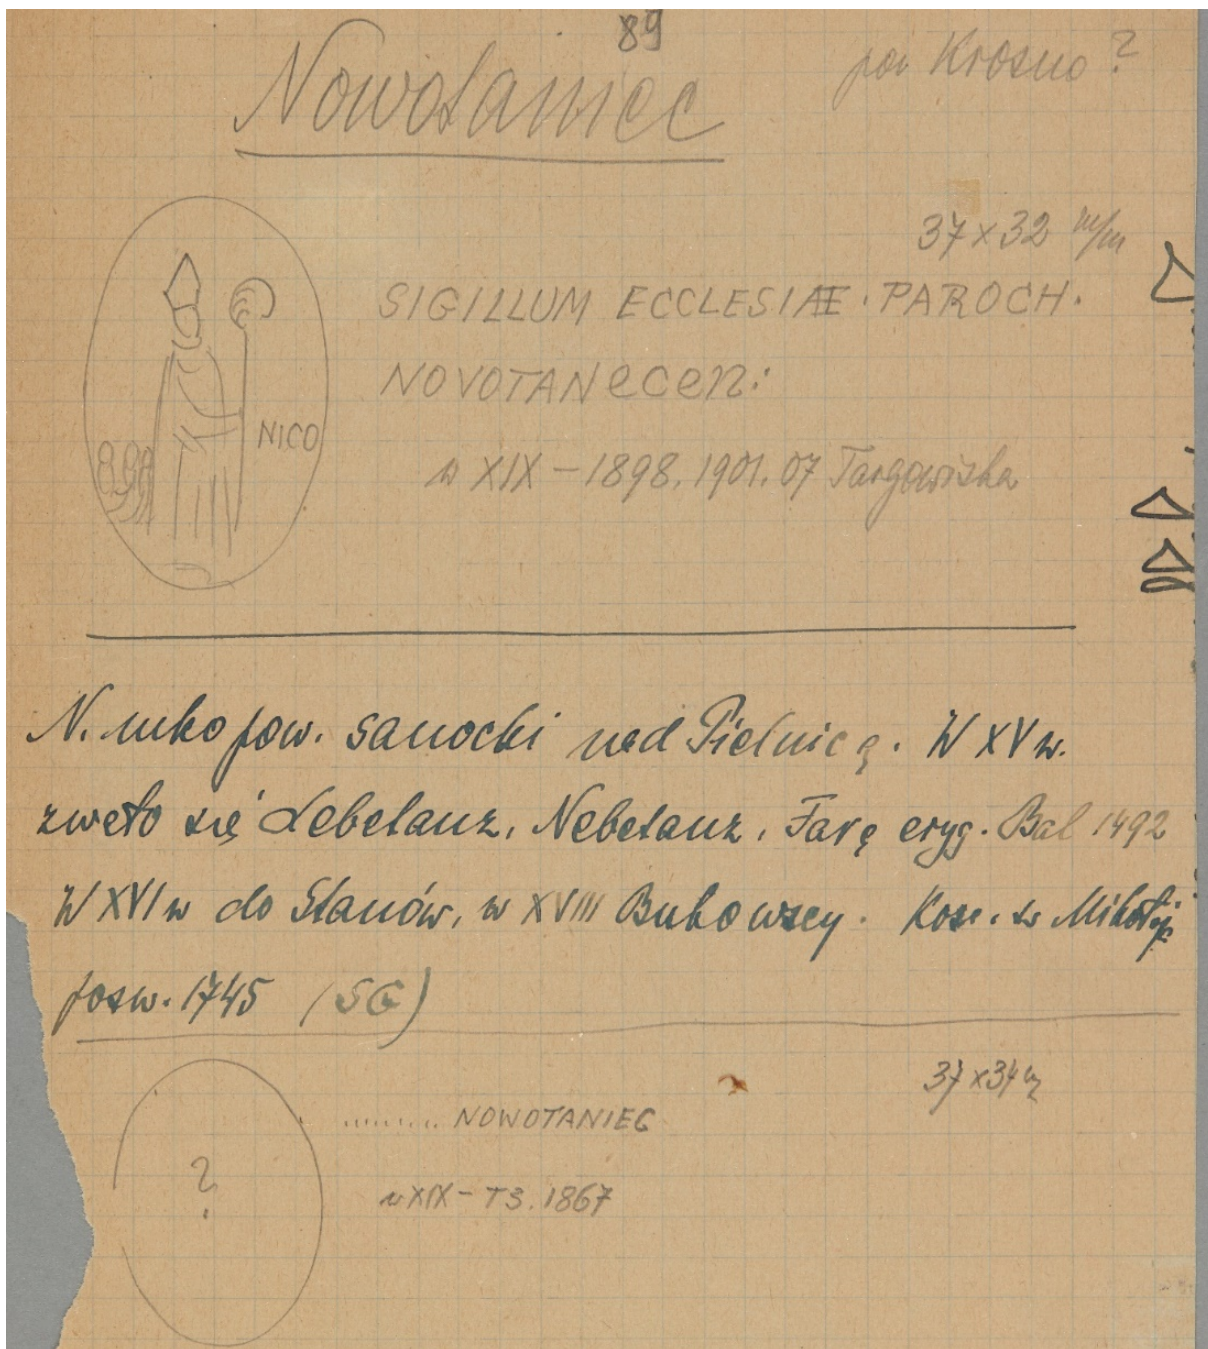 89
Nowotaniec
pow Krosno ?
37 x 32 m/m
SIGILLUM ECCLESIÆ · PAROCH ·
NOVOTANecen:
NICO
w XIX – 1898. 1901. 07 Targowiska
N. mko pow. sanocki nad Pielnicą. W XV w.
zwało się Lebetanz, Nebetanz. Farę eryg. Bal 1492
W XVI w do Stanów, w XVIII Bukowscy. Kośc. św Mikołaja
pośw. 1745 (SG)
37 x 34 m
......... NOWOTANIEC
?
w XIX – T3. 1867